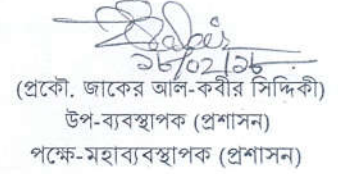 ১৮/০২/১৮
(প্রকৌ. জাকের আল-কবীর সিদ্দিকী)
উপ-ব্যবস্থাপক (প্রশাসন)
পক্ষে-মহাব্যবস্থাপক (প্রশাসন)